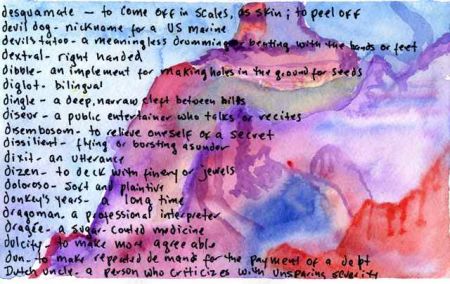 desquamate - to come off in scales, as skin; to peel off
devil dog - nickname for a US marine
devils tatoo - a meaningless drumming or beating with the hands or feet
dextral - right handed
dibble - an implement for making holes in the ground for seeds
diglot - bilingual
dingle - a deep, narraw cleft between hills
diseur - a public entertainer who talks or recites
disembosom - to relieve oneself of a secret
dissilient - flying or bursting asunder
dixit - an utterance
dizen - to deck with finery or jewels
doloroso - soft and plaintive
donkey's years - a long time
dragoman - a professional interpreter
dragée - a sugar-coated medicine
dulcify - to make more agreeable
dun - to make repeated demand for the payment of a debt
dutch uncle - a person who criticizes with unsparing severity